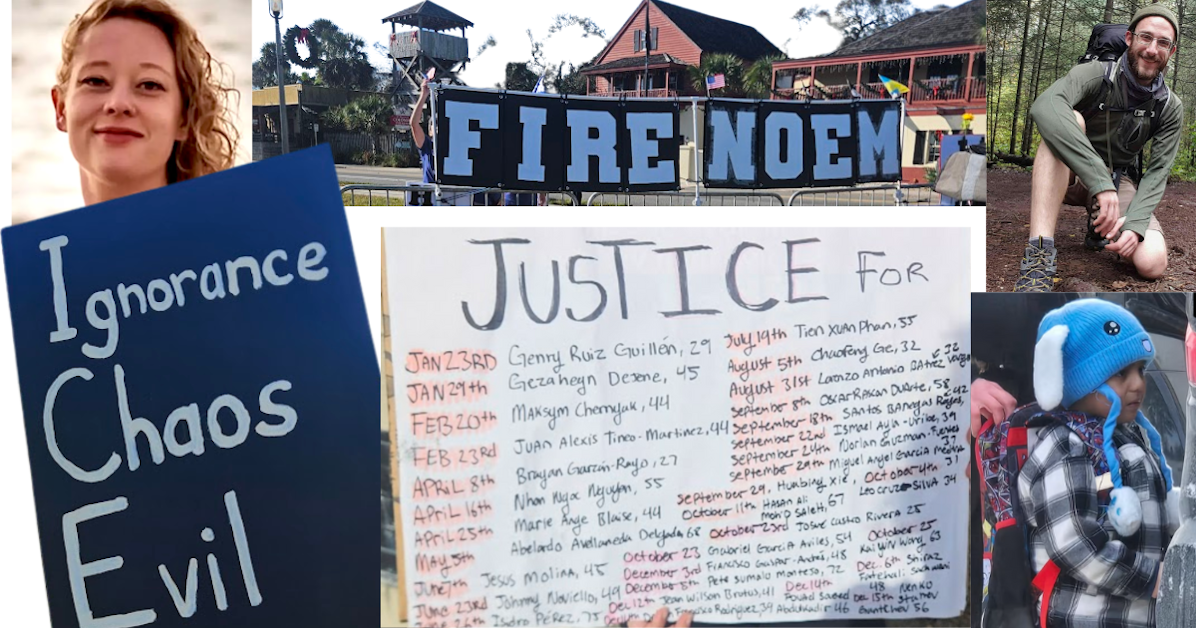 FIRE NOEM
Ignorance
Chaos
Evil
JUSTICE FOR
JAN 23RD Genry Ruiz Guillén, 29
JAN 29th Gezahegn Dejene, 45
FEB 20th Maksym Chernyak, 44
FEB 23RD Juan Alexis Tineo-Martinez, 44
APRIL 8th Brayan Garzón-Rayo, 27
APRIL 16th Nhon Ngoc Nguyen, 55
APRIL 25th Marie Ange Blaise, 44
MAY 5th Abelardo Avellaneda Delgado, 68
JUNE 7th Jesus Molina, 45
JUNE 23RD Johnny Noviello, 49
Isidro PÉREZ, 75
July 19th Tien Xuan Phan, 55
August 5th Chaofeng Ge, 32
August 31st Lorenzo Antonio Batrez 32
September 8th Oscar Rascon Duarte, 58
September 18th Santos Banegas Reyes, 42
September 22nd Ismael Ayala-Uribe, 39
September 24th Norlan Guzman-Fuentes 37
September 29th Miguel Angel Garcia Medina 31
September 29, Huabing Xie, October 4th
October 11th Hasan Ali Moh'D Saleh, 67 Leo Cruz-Silva 34
October 23rd Josue Castro Rivera 25
October 23 Gabriel Garcia Aviles, 54 October 25
December 3rd Francisco Gaspar-Andrés, 48 Kai Yin Wong 63
December 5th Pete Sumalo Montejo, 72 Dec. 6th Shiraz Fatehali Sachwani
Dec 12th Jean Wilson Brutus, 41 Fouad Saeed Dec 14th 48
Dec 15th Nenko Stanev Gantchev 56
Francisco Rodriguez, 39 Abdulkadir 46